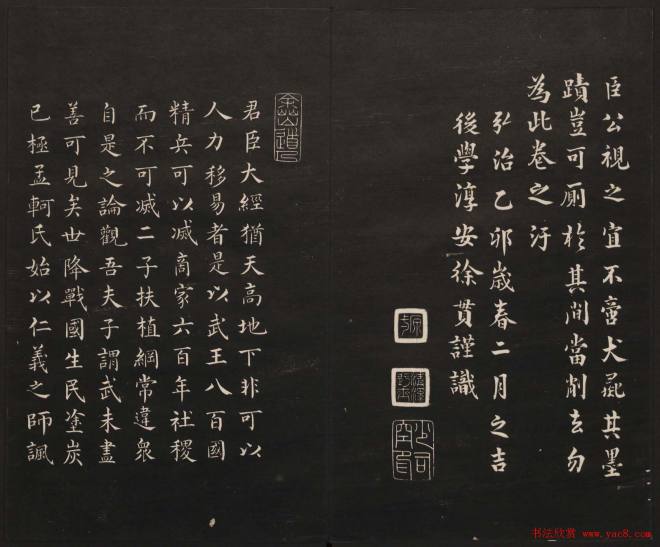 臣公視之宜不啻犬彘其墨
蹟豈可厠於其間當削去勿
為此卷之汙
弘治乙卯歲春二月之吉
後學淳安徐貫謹識
君臣大經猶天高地下非可以
人力移易者是以武王八百國
精兵可以滅商家六百年社稷
而不可滅二子扶植綱常違衆
自是之論觀吾夫子謂武未盡
善可見矣世降戰國生民塗炭
已極孟軻氏始以仁義之師諷
书法欣赏 www.yac8.com